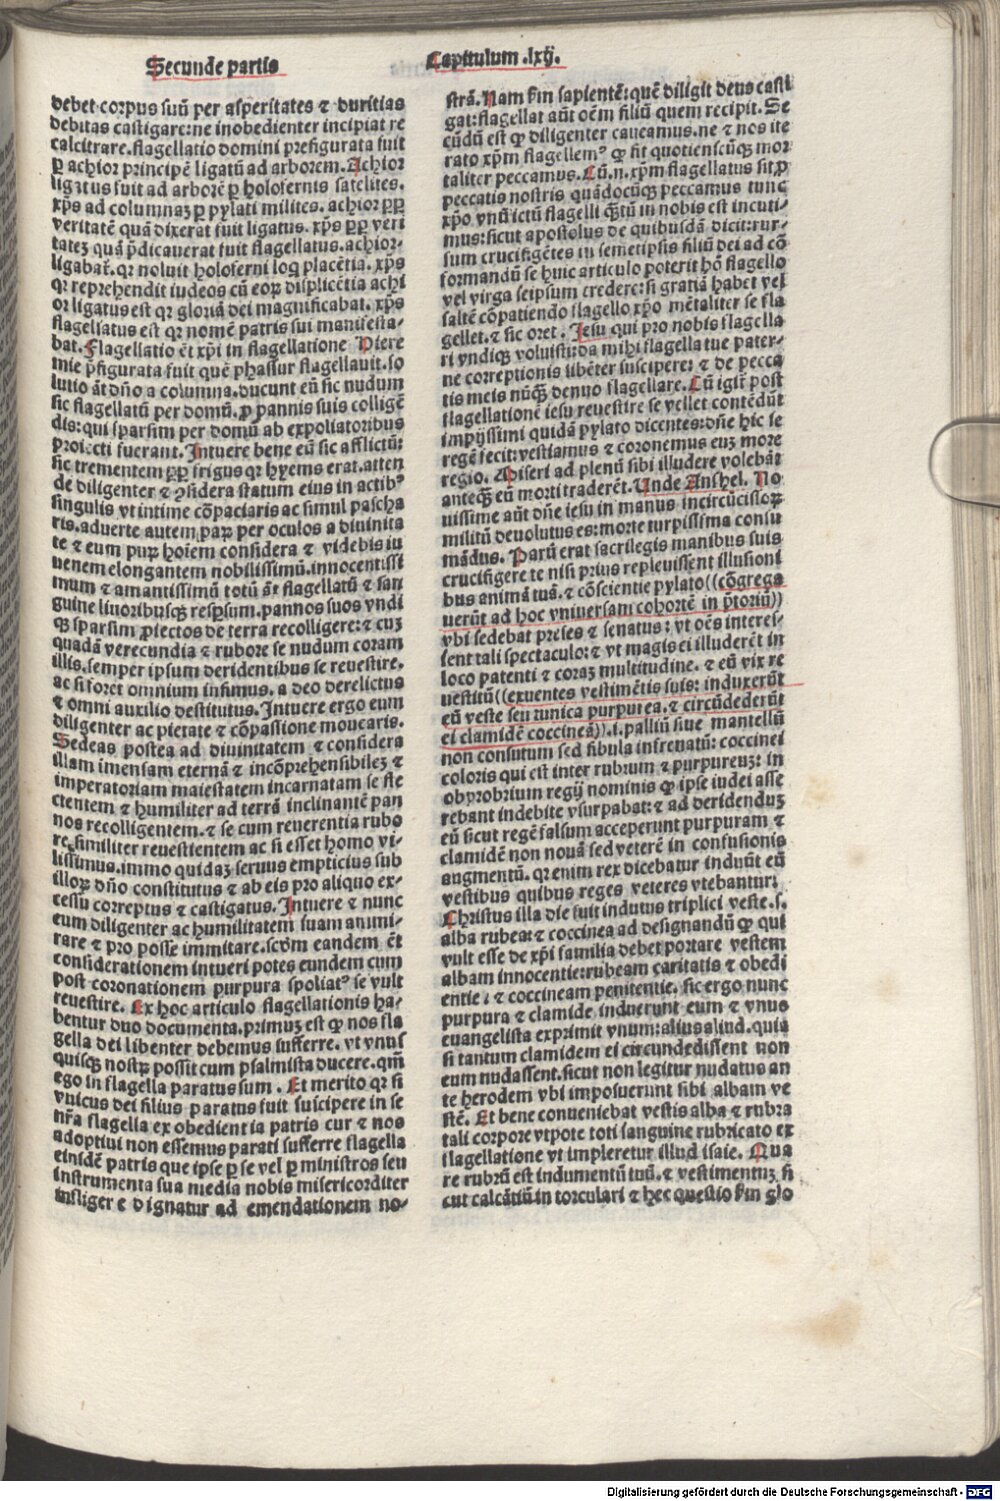 Secunde partis
Capitulum .lxij.
debet corpus suū per asperitates ⁊ duritias
debitas castigare: ne inobedienter incipiat re
calcitrare. flagellatio domini prefigurata fuit
ꝑ achior principē ligatū ad arborem. Achior
ligatus fuit ad arborē ꝑ holofernis satelites.
xp̄s ad columnaꝫ ꝑ pylati milites. achior ꝓꝑ
veritatē quā dixerat fuit ligatus. xp̄s ꝓꝑ veri
tateꝫ quā p̄dicauerat fuit flagellatus. achior-
ligabat̄. qꝛ noluit holoferni loq̄ placētia. xp̄s
qꝛ reprehendit iudeos cū eoꝝ displicētia achi
or ligatus est qꝛ gloriā dei magnificabat. xp̄s
flagellatus est qꝛ nomē patris sui manifesta-
bat. Flagellatio ēt xp̄i in flagellatione Hiere
mie p̄figurata fuit quē phassur flagellauit. so
lutio āt dn̄o a columna. ducunt eū sic nudum
sic flagellatū per domū. ꝓ pannis suis colligē
dis: qui sparsim per domū ab expoliatoribus
proiecti fuerant. Intuere bene eū sic afflictū:
sic trementem ꝓꝑ frigus qꝛ hyems erat. atten
de diligenter ⁊ ꝯsidera statum eius in actibꝰ
singulis vt intime cōpaciaris ac simul pascha
ris. aduerte autem paꝝ per oculos a diuinita
te ⁊ eum puꝝ hoīem considera ⁊ videbis iu
uenem elongantem nobilissimū. innocentissi
mum ⁊ amantissimū totū āt flagellatū ⁊ san
guine liuoribusqꝫ resp̄sum. pannos suos vndi
qꝫ sparsim ꝓiectos de terra recolligere: ⁊ cuꝫ
quadā verecundia ⁊ rubore se nudum coram
illis. semper ipsum deridentibus se reuestire.
ac si foret omnium infimus. a deo derelictus
⁊ omni auxilio destitutus. Intuere ergo eum
diligenter ac pietate ⁊ cōpassione mouearis.
Sedeas postea ad diuinitatem ⁊ considera
illam imensam eternā ⁊ incōprehensibileꝫ ⁊
imperatoriam maiestatem incarnatam se fle
ctentem ⁊ humiliter ad terrā inclinantē pan
nos recolligentem. ⁊ se cum reuerentia rubo
re similiter reuestientem ac si esset homo vi-
lissimus. immo quidaꝫ seruus empticius sub
illoꝝ dn̄o constitutus ⁊ ab eis pro aliquo ex-
cessu correptus ⁊ castigatus. Intuere ⁊ nunc
eum diligenter ac humilitatem suam animi-
rare ⁊ pro posse immitare. scd̄m eandem ēt
considerationem intueri potes eundem cum
post coronationem purpura spoliatꝰ se vult
reuestire. Ex hoc articulo flagellationis ha-
bentur duo documenta. primuꝫ est qꝙ nos fla
gella dei libenter debemus sufferre. vt vnus
quisqꝫ nostꝝ possit cum psalmista ducere. qm̄
ego in flagella paratus sum. Et merito qꝛ si
vnicus dei filius paratus fuit suscipere in se
nr̄a flagella ex obedientia patris cur ⁊ nos
adoptiui non essemus parati sufferre flagella
eiusdē patris que ipse ꝑ se vel ꝑ ministros seu
instrumenta sua media nobis misericorditer
infligere dignatur ad emendationem no-
strā. Nam ſm sapientē: quē diligit deus casti
gat: flagellat aūt oēm filiū quem recipit. Se
cūdū est ꝙ diligenter caueamus. ne ⁊ nos ite
rato xp̄m flagellemꝰ ꝙ fit quotienscūqꝫ mor
taliter peccamus. Cū. n. xp̄m flagellatus sit ꝓ
peccatis nostris quādocūqꝫ peccamus tunc
xp̄o vnū ictū flagelli qꝫtū in nobis est incuti-
mus: sicut apostolus de quibusdā dicit: rur-
sum crucifigētes in semetipsis filiū dei ad cō
formandū se huic articulo poterit hō flagello
vel virga seipsum credere: si gratiā habet vel
saltē cōpatiendo flagello xp̄o mētaliter se fla
gellet. ⁊ sic oret. Iesu qui pro nobis flagella
ri vndiqꝫ voluisti: da mihi flagella tue pater-
ne correptionis libēter suscipere: ⁊ de pecca
tis meis nūqꝫ denuo flagellare. Cū igit̄ post
flagellationē iesu reuestire se vellet contēdūt
impijssimi quidā pylato dicentes: dn̄e hic se
regē fecit: vestiamus ⁊ coronemus euꝫ more
regio. Miseri ad plenū sibi illudere volebāt
anteqꝫ eū morti traderēt. Unde Anshel. No
uissime aūt dn̄e iesu in manus incircūcisoꝝ
militū deuolutus es: morte turpissima consu
mādus. Parū erat sacrilegis manibus suis
crucifigere te nisi prius repleuissent illusioni
bus animā tuā. ⁊ cōscientie pylato ((cōgrega
uerūt ad hoc vniuersam cohortē in p̄toriū))
vbi sedebat preses ⁊ senatus: vt oēs interes-
sent tali spectaculo: ⁊ vt magis ei illuderēt in
loco patenti ⁊ coraꝫ multitudine. ⁊ eū vix re
uestitū ((exuentes vestimētis suis: induxerūt
eū veste seu tunica purpurea. ⁊ circūdederūt
ei clamidē coccineā)). i. palliū siue mantellū
non consutum sed fibula infrenatū: coccinei
coloris qui est inter rubrum ⁊ purpureuꝫ: in
obprobrium regij nominis ꝙ ipse iudei asse
rebant indebite vsurpabat: ⁊ ad deridenduꝫ
eū sicut regē falsum acceperunt purpuram ⁊
clamidē non nouā sed veterē in confusionis
augmentū. qꝛ enim rex dicebatur induūt eū
vestibus quibus reges veteres vtebantur:
Christus illa die fuit indutus triplici veste. s.
alba rubea: ⁊ coccinea ad designandū ꝙ qui
vult esse de xp̄i familia debet portare vestem
albam innocentie: rubeam caritatis ⁊ obedi
entie: ⁊ coccineam penitentie. sic ergo nunc
purpura ⁊ clamide induerunt eum ⁊ vnus
euangelista exprimit vnum: alius aliud. quia
si tantum clamidem ei circundedissent non
eum nudassent. sicut non legitur nudatus an
te herodem vbi imposuerunt sibi albam ve
stē. Et bene conueniebat vestis alba ⁊ rubra
tali corpore vtpote toti sanguine rubricato ex
flagellatione vt impleretur illud isaie. Qua
re rubrū est indumentū tuū. ⁊ vestimentuꝫ si
cut calcātiū in torculari ⁊ hec questio ſm glo
Digitalisierung gefördert durch die Deutsche Forschungsgemeinschaft - DFG